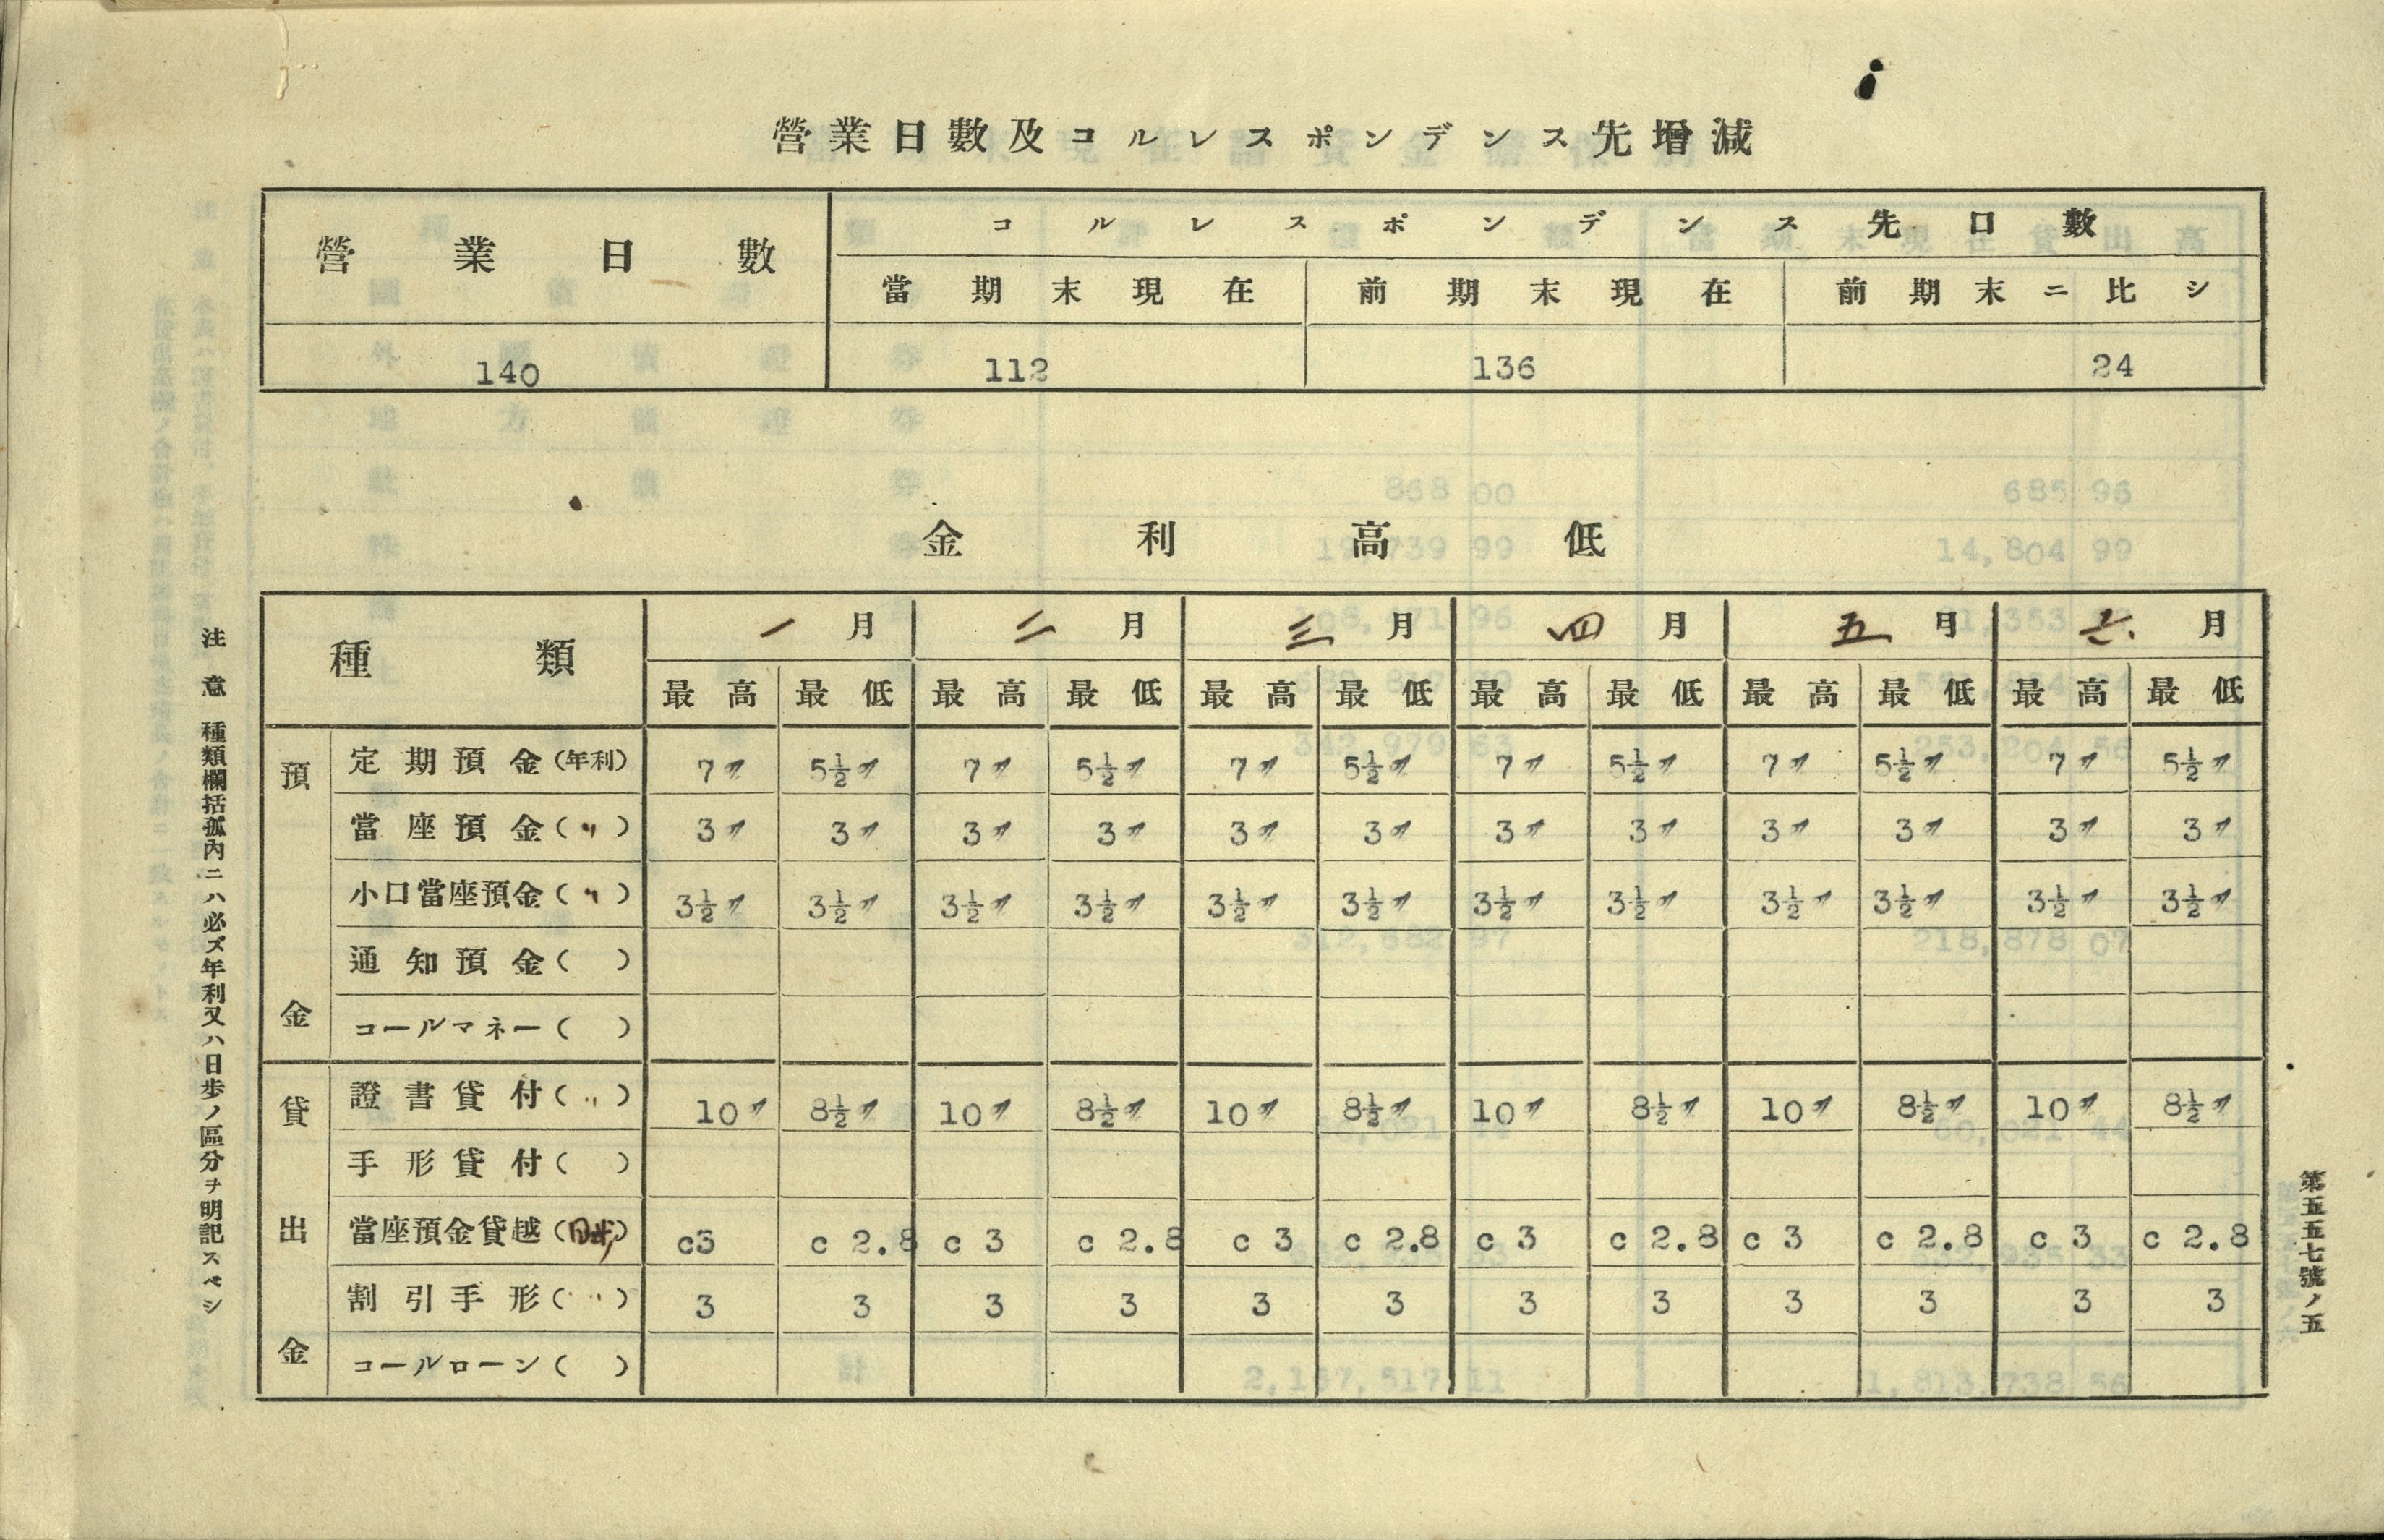 營業日數及コルレスポンデンス先增減
營業日數 コルレスポンデンス先口數
當期末現在 前期末現在 前期末ニ比シ
140 112 136 24
金利高低
種類 一月 二月 三月 四月 五月 六月
最高 最低 最高 最低 最高 最低 最高 最低 最高 最低 最高 最低
預金
定期預金(年利) 7% 5½% 7% 5½% 7% 5½% 7% 5½% 7% 5½% 7% 5½%
當座預金(〃) 3% 3% 3% 3% 3% 3% 3% 3% 3% 3% 3% 3%
小口當座預金(〃) 3½% 3½% 3½% 3½% 3½% 3½% 3½% 3½% 3½% 3½% 3½% 3½%
通知預金( )
コールマネー( )
貸出金
證書貸付(〃) 10% 8½% 10% 8½% 10% 8½% 10% 8½% 10% 8½% 10% 8½%
手形貸付( )
當座預金貸越(日歩) c3 c 2.8 c 3 c 2.8 c 3 c 2.8 c 3 c 2.8 c 3 c 2.8 c 3 c 2.8
割引手形(〃) 3 3 3 3 3 3 3 3 3 3 3 3
コールローン( )
注意 種類欄括孤內ニハ必ズ年利又ハ日歩ノ區分ヲ明記スベシ
第五五七號ノ五